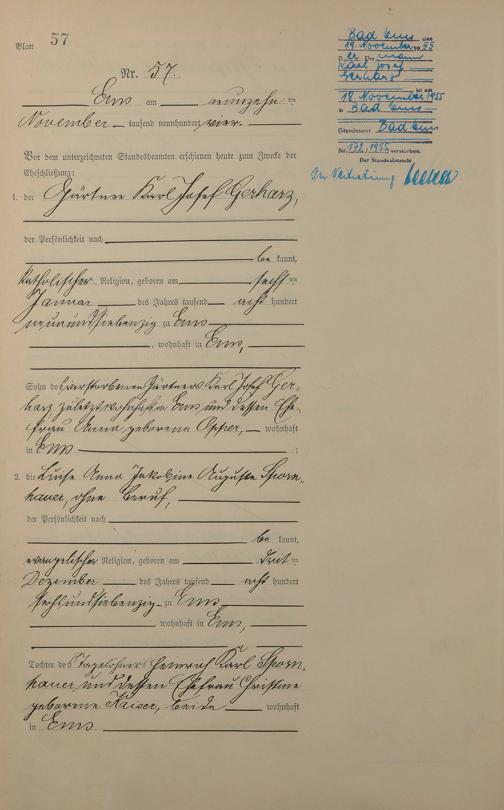 Blatt 57
Nr. 57.
Ems am neunzehn ten
November tausend neunhundert vier.
Vor dem unterzeichneten Standesbeamten erschienen heute zum Zwecke der
Eheschließung:
1. der Gärtner Karl Josef Gerharz,
der Persönlichkeit nach
be kannt,
katholischer Religion, geboren am sechs ten
Januar des Jahres tausend acht hundert
neunundsiebenzig zu Ems
, wohnhaft in Ems,
Sohn des verstorbenen Gärtners Karl Josef Ger-
harz zuletzt wohnhaft in Ems und dessen Ehe-
frau Anna geborene Opper, wohnhaft
in Ems ;
2. die Luise Anna Jakobine Auguste Sporn-
hauer, ohne Beruf,
der Persönlichkeit nach
be kannt,
evangelischer Religion, geboren am drit ten
Dezember des Jahres tausend acht hundert
sechsundsiebenzig zu Ems
wohnhaft in Ems,
Tochter des Tagelöhners Heinrich Karl Sporn-
hauer und dessen Ehefrau Christine
geborene Kaiser, beide wohnhaft
in Ems.
Bad Ems, den
19. November 1955
D er Ehemann
Karl Josef
Gerharz
ist am
18. November 1955
in Bad Ems
Standesamt Bad Ems
Nr. 132/1955 verstorben.
Der Standesbeamte
In Vertretung